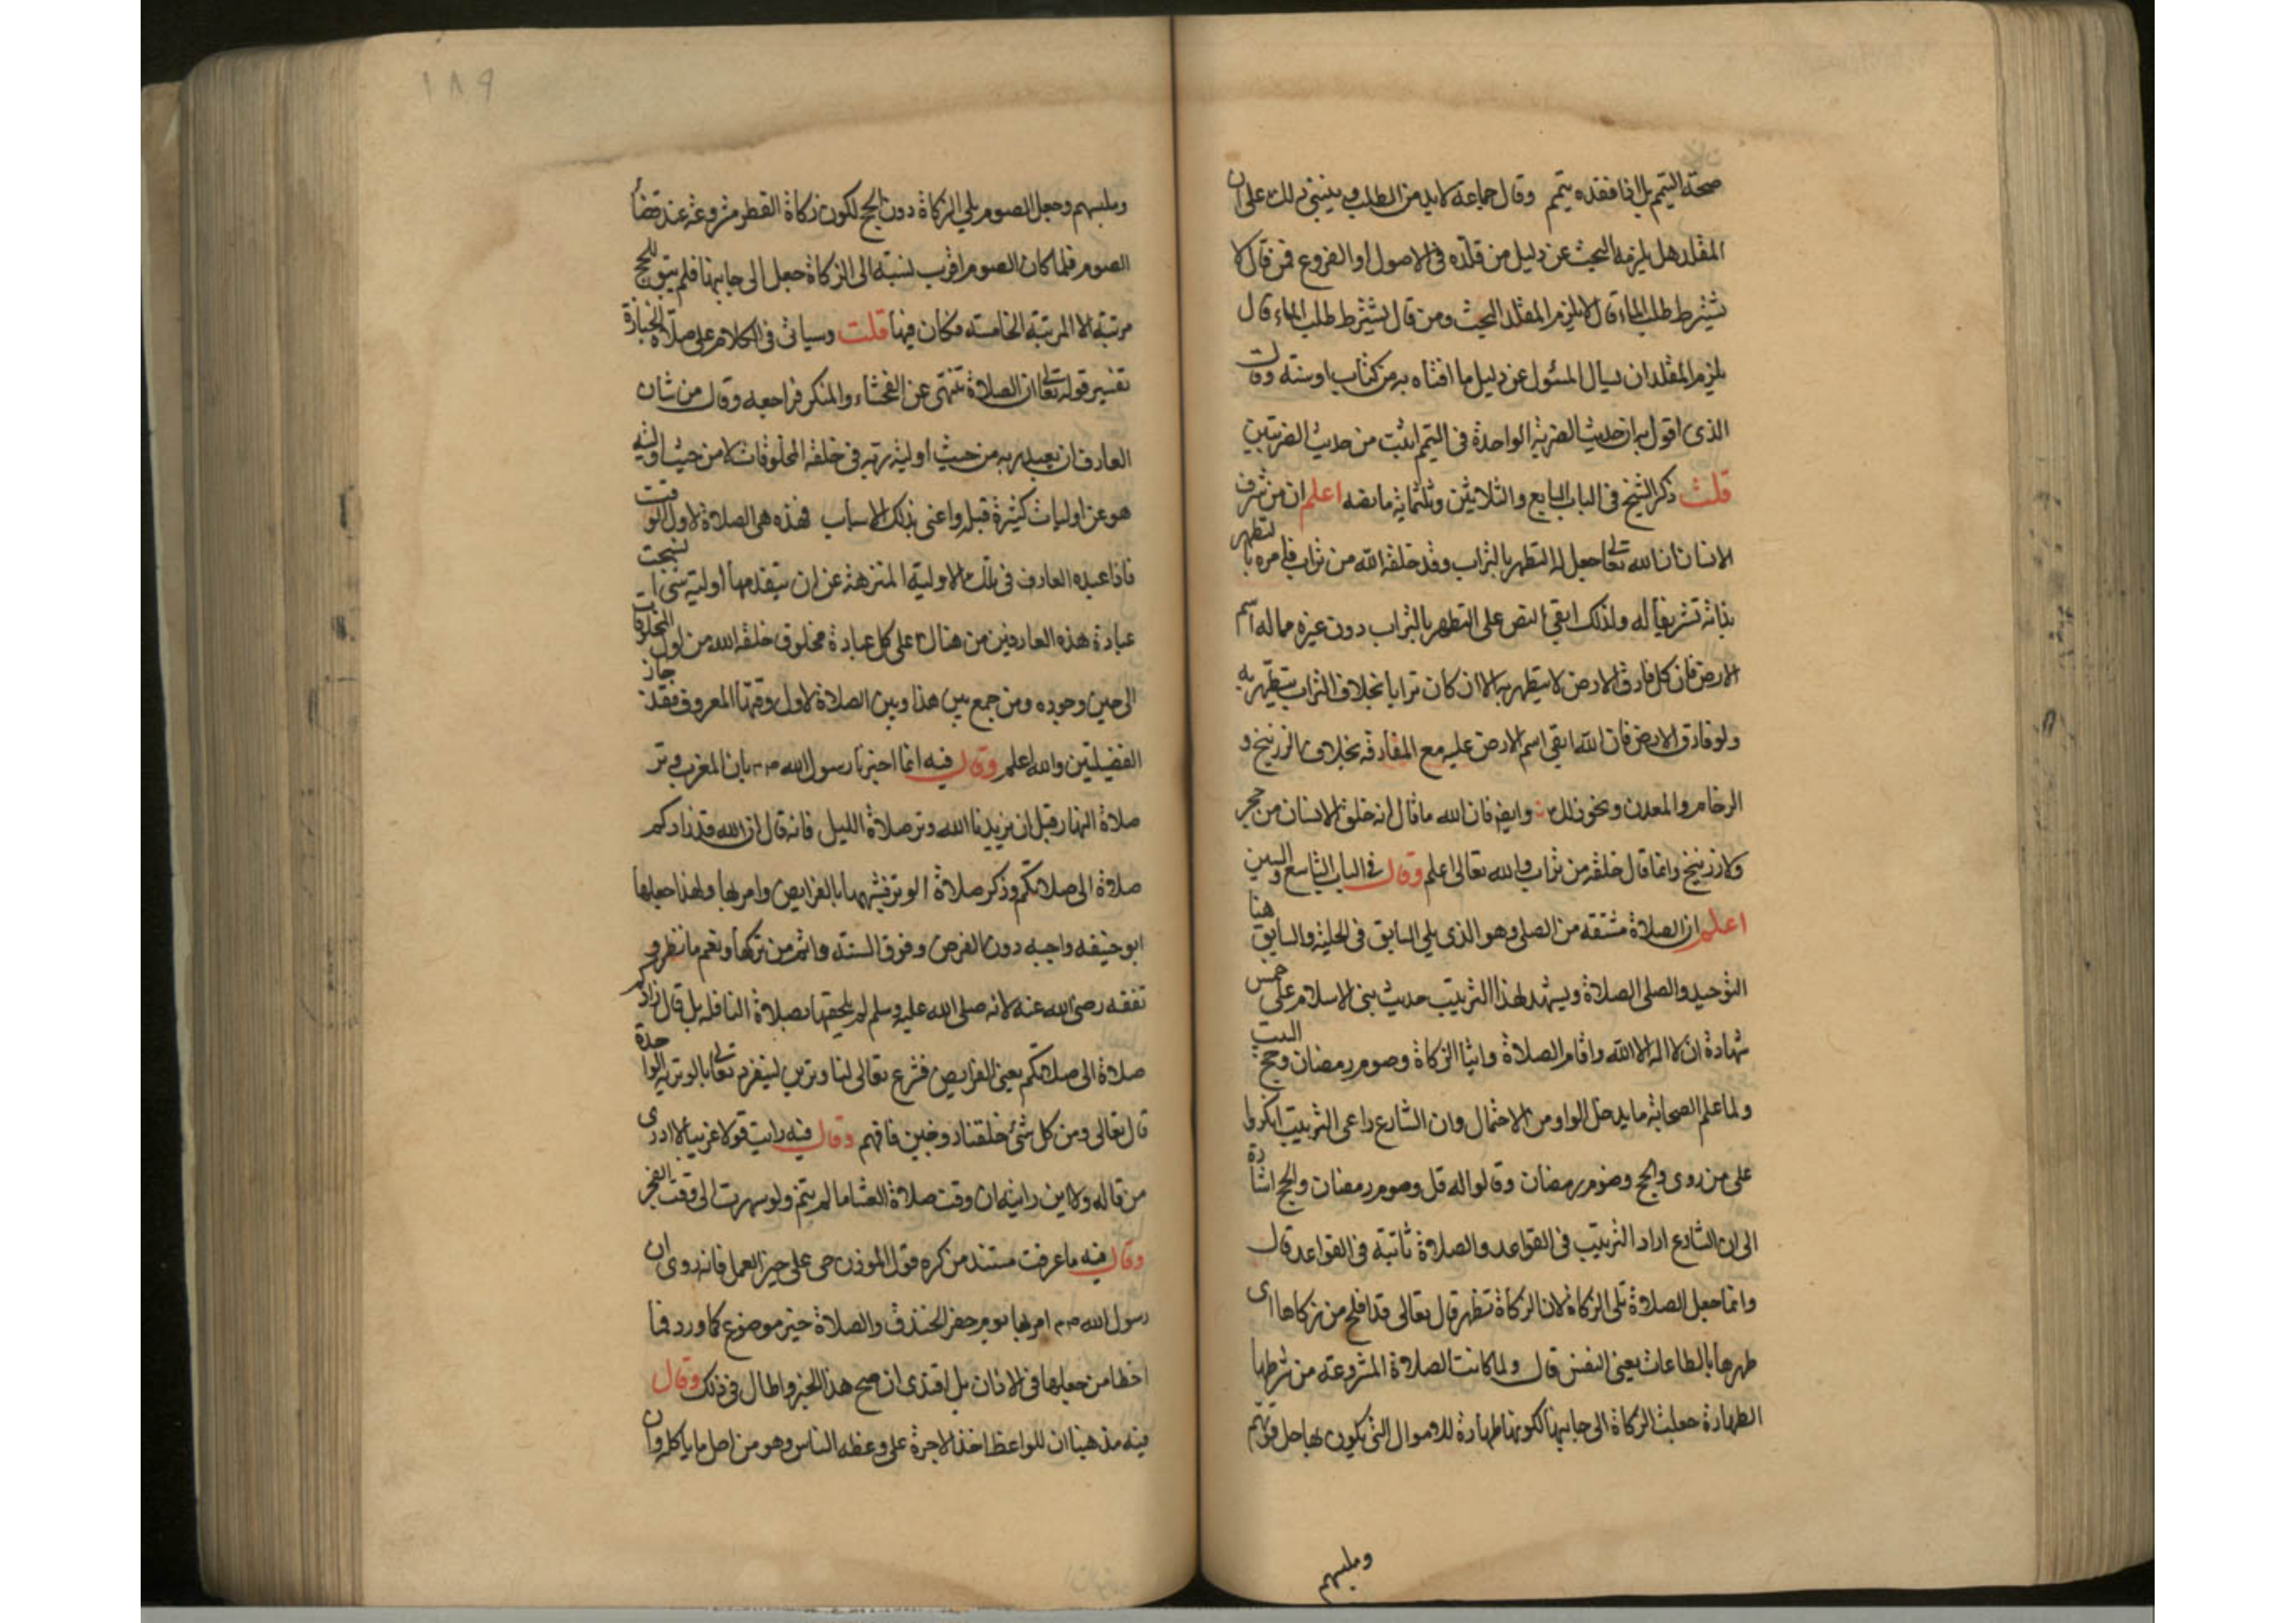 صحة التيمم بل اذا فقده يتيمم وقال جماعة لابد من الطلب وينبني ذلك على ان
المقلد هل يلزمه البحث عن دليل من قلده في الاصول او الفروع فمن قال لا
يشترط طلب الماء قال لا يلزم المقلد البحث ومن قال يشترط طلب الماء قال
يلزم المقلد ان يسال المسئول عن دليل ما افتاه به من كتاب او سنة وقال
الذى اقول به ان حديث الضربة الواحدة فى التيمم اثبت من حديث الضربتين
قلت ذكر الشيخ فى الباب السابع والثلاثين وثلثماية ما نصه اعلم ان من شرف
الانسان ان الله تعالى جعل له التطهر بالتراب وقد خلقه الله من تراب فامره بالتطهر
بذاته تشريفا له ولذلك ابقى النص على التطهر بالتراب دون غيره مما له اسم
الارض فان كل ما فارق الارض لا يتطهر به الا ان كان ترابا بخلاف التراب يتطهر به
ولو فارق الارض فان الله ابقى اسم الارض عليه مع المفارقة بخلاف الزرنيخ و
الرخام والمعدن ونحو ذلك وايضا فان الله ما قال انه خلق الانسان من حجر
ولا زرنيخ وانما قال خلقه من تراب والله تعالى اعلم وقال فى الباب التاسع والستين
اعلم ان الصلاة مشتقة من المصلى وهو الذى يلى السابق فى الحلبة والسابق هنا
التوحيد والمصلى الصلاة ويشهد لهذا الترتيب حديث بنى الاسلام على خمس
شهادة ان لا اله الا الله واقام الصلاة وايتا الزكاة وصوم رمضان وحج البيت
ولما علم الصحابة ما يدخل الواو من الاحتمال وان الشارع راعى الترتيب انكروا
على من روى والحج وصوم رمضان وقالوا له قل وصوم رمضان والحج اشارة
الى ان الشارع اراد الترتيب فى القواعد والصلاة ثانية فى القواعد قال
وانما جعل الصلاة تلى الزكاة لان الزكاة تطهر قال تعالى قد افلح من زكاها اى
طهرها بالطاعات يعنى النفس قال ولما كانت الصلاة المشروعة من شرطها
الطهارة جعلت الزكاة الى جانبها لكونها طهارة للاموال التى يكون بها حل قوتهم
وملبسهم
١٨٩
وملبسهم وجعل الصوم يلى الزكاة دون الحج لكون زكاة الفطر مشروعة عند قضا
الصوم فلما كان الصوم اقرب نسبة الى الزكاة جعل الى جانبها فلم يبق للحج
مرتبة الا المرتبة الخامسة فكان فيها قلت وسياتى فى الكلام على صلاة الجنازة
تفسير قوله تعالى ان الصلاة تنهى عن الفحشاء والمنكر فراجعه وقال من شان
العارف ان يعبد ربه من حيث أولية ربه فى خلقه المخلوقات لا من حيث اولية
هو عن اوليات كثيرة قبله واعنى بذلك الاسباب فهذه هى الصلاة لاول الوقت
فاذا عبده العارف فى تلك الاولية المنزهة عن ان يتقدمها أولية شى انسحبت
عبادة هذه العارفين من هناك على كل عبادة مخلوق خلقه الله من اول المخلوقات
الى حين وجوده ومن جمع بين هذا وبين الصلاة لاول وقتها المعروف فقد حاز
الفضيلتين والله اعلم وقال فيه انما اخبرنا رسول الله صم بان المغرب وتر
صلاة النهار قبل ان يزيدنا الله وتر صلاة الليل فانه قال ان الله قد زادكم
صلاة الى صلاتكم وذكر صلاة الوتر فشبهها بالفرايض وامر بها ولهذا جعلها
ابو حنيفه واجبه دون الفرض وفوق السنة واثم من تركها ونعم ما نظر و
تفقه رضى الله عنه لانه صلى الله عليه وسلم لم يلحقها بصلاة النافلة بل قال زادكم
صلاة الى صلاتكم يعنى الفرايض فشرع تعالى لنا وترين لينفرد تعالى بالوترية الواحدة
قال تعالى ومن كل شئ خلقنا زوجين فافهم وقال فيه رايت قولا غريبا لا ادرى
من قاله ولا اين رايته ان وقت صلاة العشا ما لم يتم ولو سهرت الى وقت الفجر
وقال فيه ما عرفت مستند من كره قول الموذن حى على خير العمل فانه روى ان
رسول الله صم امر بها يوم حفر الخندق والصلاة خير موضوع كما ورد فما
اخطا من جعلها فى الاذان بل اقتدى ان صح هذا الخبر واطال فى ذلك وقال
فيه مذهبنا ان للواعظ اخذ الاجرة على وعظه الناس وهو من احل ما ياكل وان